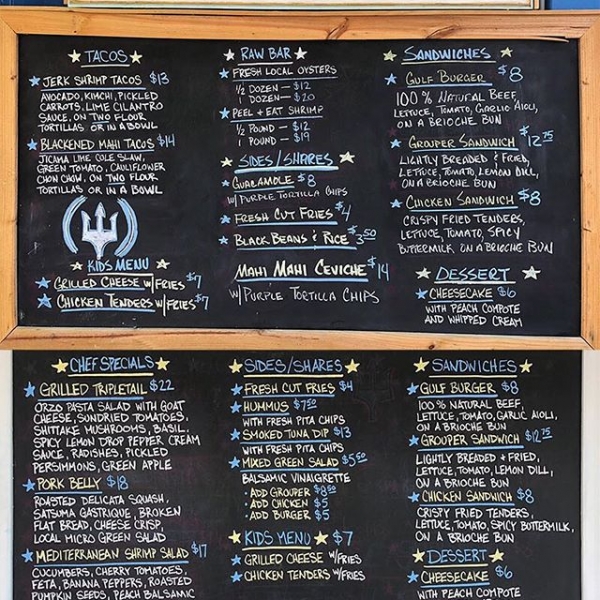 TACOS
JERK SHRIMP TACOS $13
AVOCADO, KIMCHI, PICKLED
CARROTS, LIME CILANTRO
SAUCE, ON TWO FLOUR
TORTILLAS OR IN A BOWL
BLACKENED MAHI TACOS $14
JICIMA LIME COLE SLAW,
GREEN TOMATO, CAULIFLOWER
CHOW CHOW, ON TWO FLOUR
TORTILLAS OR IN A BOWL
KIDS MENU
GRILLED CHEESE W/FRIES $7
CHICKEN TENDERS W/FRIES $7
RAW BAR
FRESH LOCAL OYSTERS
1/2 DOZEN — $12
1 DOZEN — $20
PEEL + EAT SHRIMP
1/2 POUND — $12
1 POUND — $19
SIDES/SHARES
GUACAMOLE $8
W/ PURPLE TORTILLA CHIPS
FRESH CUT FRIES $4
BLACK BEANS & RICE $3.50
MAHI MAHI CEVICHE $14
W/ PURPLE TORTILLA CHIPS
SANDWICHES
GULF BURGER $8
100% NATURAL BEEF
LETTUCE, TOMATO, GARLIC AIOLI,
ON A BRIOCHE BUN
GROUPER SANDWICH $12.75
LIGHTLY BREADED & FRIED,
LETTUCE, TOMATO, LEMON DILL,
ON A BRIOCHE BUN
CHICKEN SANDWICH $8
CRISPY FRIED TENDERS,
LETTUCE, TOMATO, SPICY
BUTTERMILK, ON A BRIOCHE BUN
DESSERT
CHEESECAKE $6
WITH PEACH COMPOTE
AND WHIPPED CREAM
CHEF SPECIALS
GRILLED TRIPLETAIL $22
ORZO PASTA SALAD WITH GOAT
CHEESE, SUNDRIED TOMATOES,
SHITTAKE MUSHROOMS, BASIL.
SPICY LEMON DROP PEPPER CREAM
SAUCE, RADISHES, PICKLED
PERSIMMONS, GREEN APPLE
PORK BELLY $18
ROASTED DELICATA SQUASH,
SATSUMA GASTRIQUE, BROKEN
FLAT BREAD, CHEESE CRISP,
LOCAL MICRO GREEN SALAD
MEDITERRANEAN SHRIMP SALAD $17
CUCUMBERS, CHERRY TOMATOES,
FETA, BANANA PEPPERS, ROASTED
PUMPKIN SEEDS, PEACH BALSAMIC
SIDES/SHARES
FRESH CUT FRIES $4
HUMMUS $7.50
WITH FRESH PITA CHIPS
SMOKED TUNA DIP $13
WITH FRESH PITA CHIPS
MIXED GREEN SALAD $5.50
BALSAMIC VINAIGRETTE
· ADD GROUPER $8.50
· ADD CHICKEN $5
· ADD BURGER $5
KIDS MENU $7
GRILLED CHEESE W/FRIES
CHICKEN TENDERS W/FRIES
SANDWICHES
GULF BURGER $8
100% NATURAL BEEF
LETTUCE, TOMATO, GARLIC AIOLI,
ON A BRIOCHE BUN
GROUPER SANDWICH $12.75
LIGHTLY BREADED + FRIED,
LETTUCE, TOMATO, LEMON DILL,
ON A BRIOCHE BUN
CHICKEN SANDWICH $8
CRISPY FRIED TENDERS,
LETTUCE, TOMATO, SPICY BUTTERMILK,
ON A BRIOCHE BUN
DESSERT
CHEESECAKE $6
WITH PEACH COMPOTE